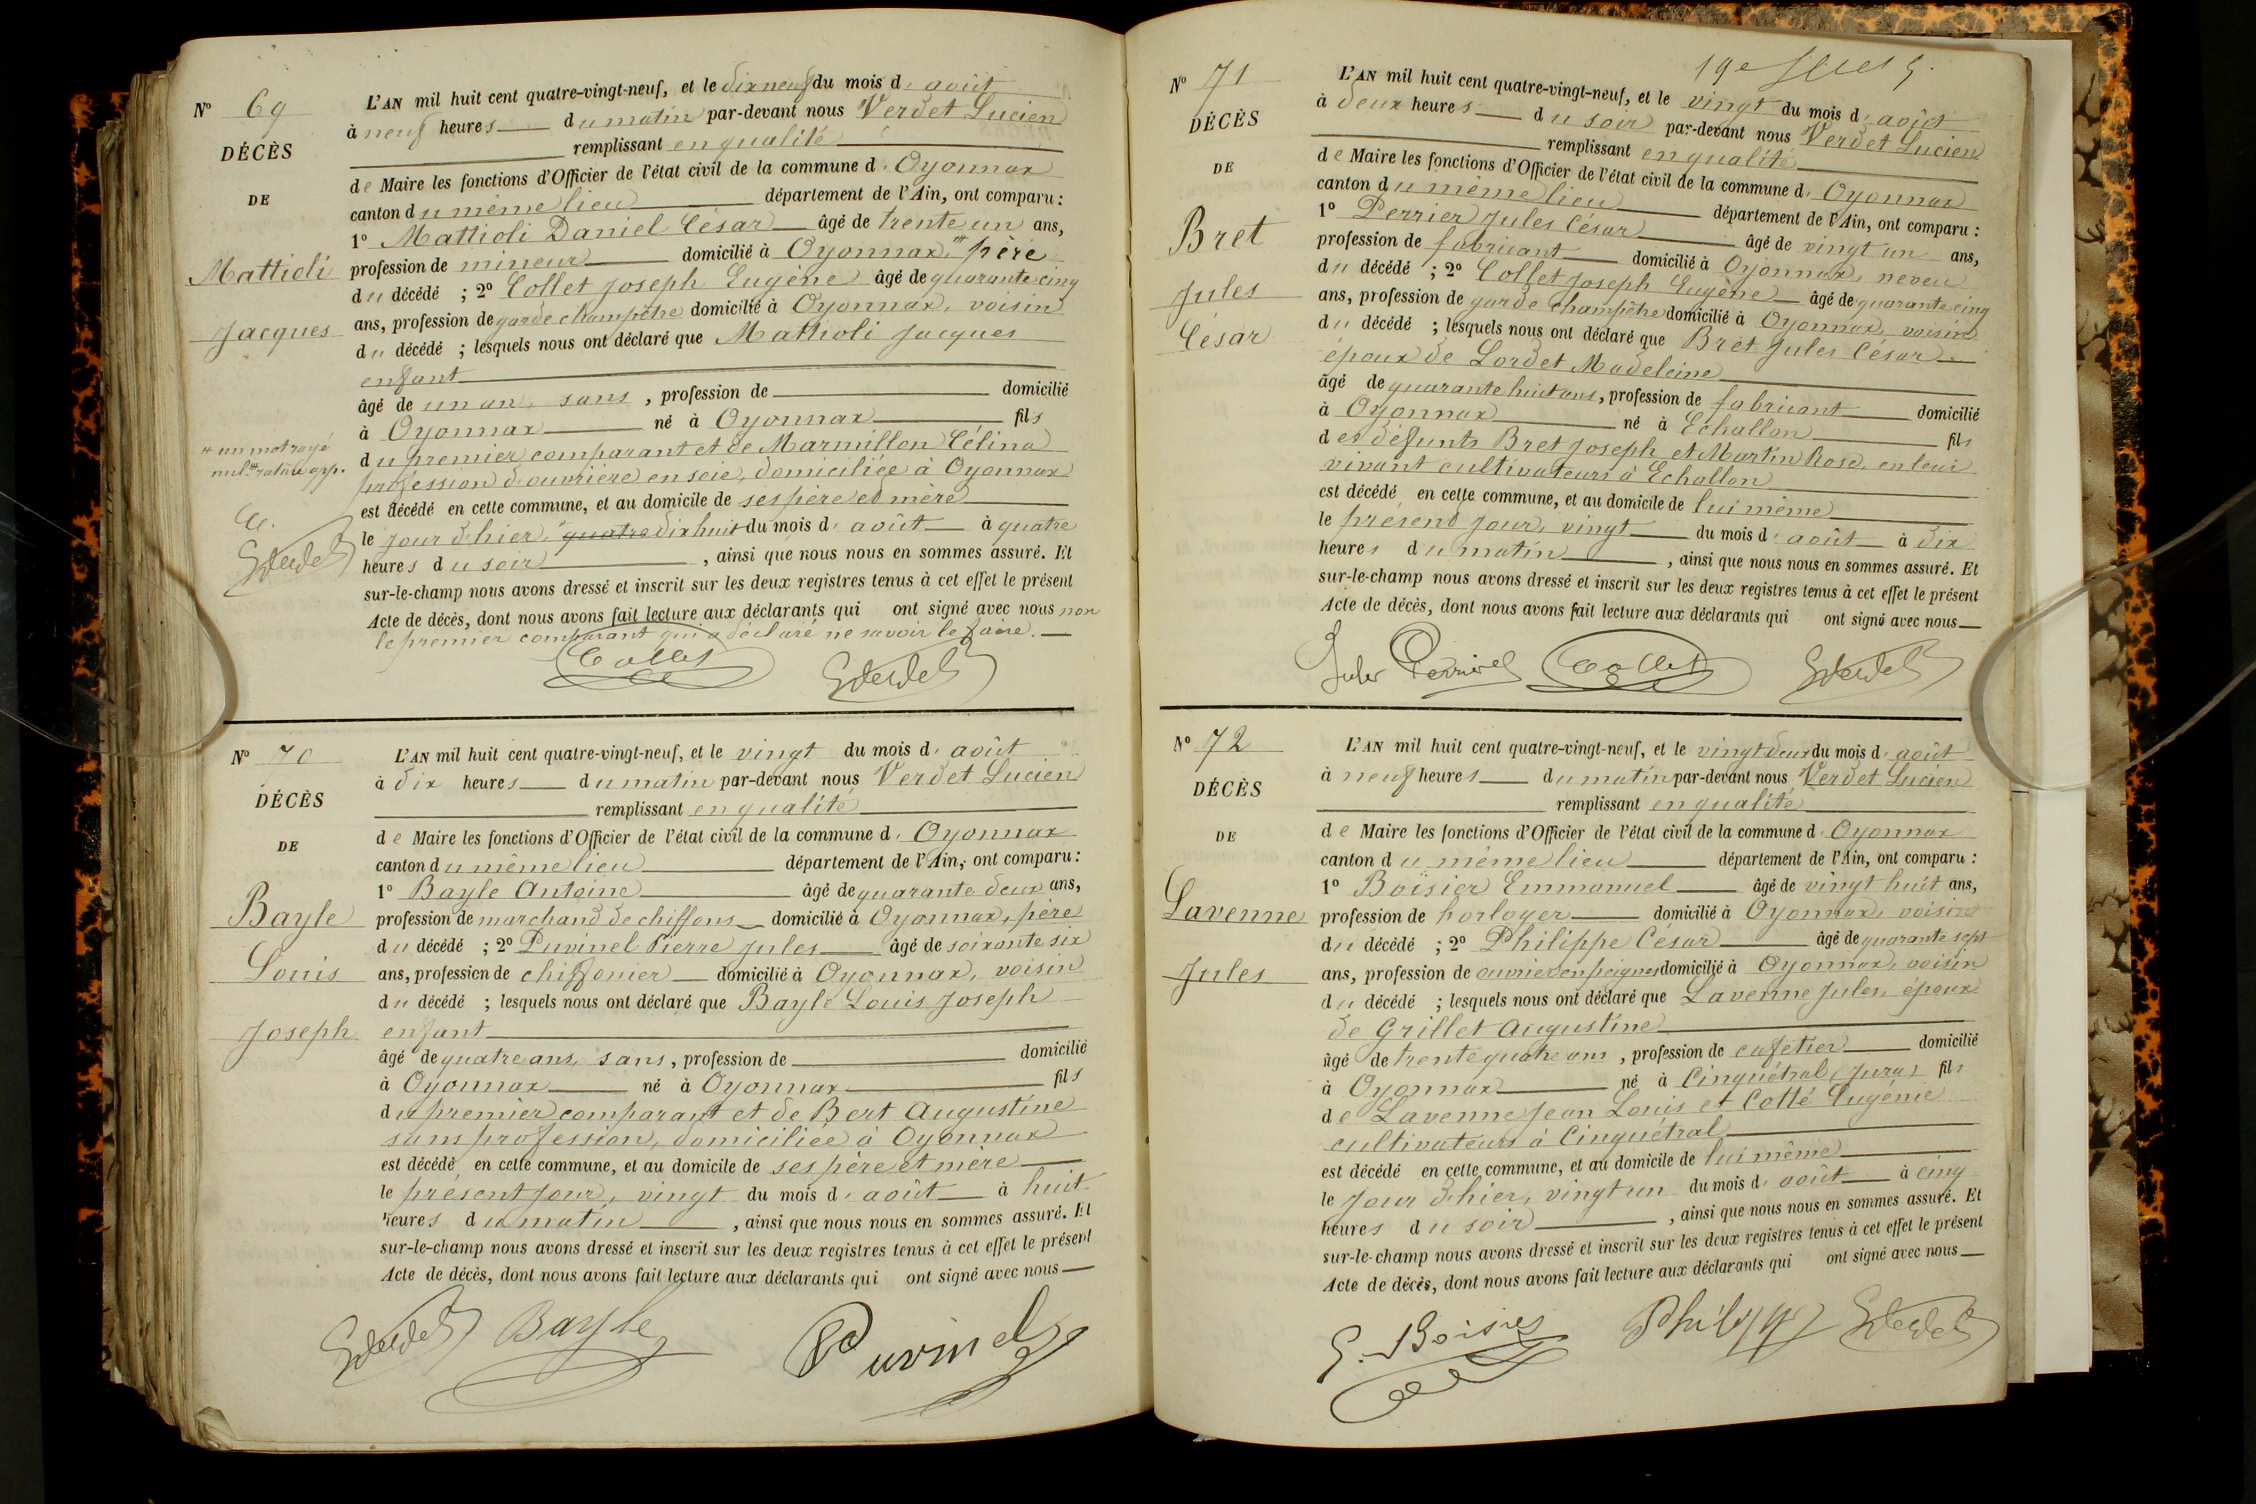 Nº 69
DÉCÈS
DE
Mattioli
Jacques
un mot rayé
nul
L'AN mil huit cent quatre-vingt-neuf, et le dix neuf du mois d' août
à neuf heures du matin par-devant nous Verdet Lucien
remplissant en qualité
de Maire les fonctions d'Officier de l'état civil de la commune d' Oyonnax
canton du même lieu département de l'Ain, ont comparu :
1º Mattioli Daniel César âgé de trente un ans,
profession de mineur domicilié à Oyonnax, père
du décédé ; 2º Collet Joseph Eugène âgé de quarante cinq
ans, profession de garde champêtre domicilié à Oyonnax, voisin
du décédé ; lesquels nous ont déclaré que Mattioli Jacques
enfant
âgé de un an, sans, profession de domicilié
à Oyonnax né à Oyonnax fils
du premier comparant et de Marmillon Célina
profession d'ouvrière en soie, domiciliée à Oyonnax
est décédé en cette commune, et au domicile de ses père et mère
le jour d'hier, quatre dix huit du mois d' août à quatre
heures du soir, ainsi que nous nous en sommes assuré. Et
sur-le-champ nous avons dressé et inscrit sur les deux registres tenus à cet effet le présent
Acte de décès, dont nous avons fait lecture aux déclarants qui ont signé avec nous non
le premier comparant qui a déclaré ne savoir le faire.
Collet
Nº 70
DÉCÈS
DE
Bayle
Louis
Joseph
L'AN mil huit cent quatre-vingt-neuf, et le vingt du mois d' août
à dix heures du matin par-devant nous Verdet Lucien
remplissant en qualité
de Maire les fonctions d'Officier de l'état civil de la commune d' Oyonnax
canton du même lieu département de l'Ain, ont comparu :
1º Bayle Antoine âgé de quarante deux ans,
profession de marchand de chiffons domicilié à Oyonnax, père
du décédé ; 2º Puvinel Pierre Jules âgé de soixante six
ans, profession de chiffonier domicilié à Oyonnax, voisin
du décédé ; lesquels nous ont déclaré que Bayle Louis Joseph
enfant
âgé de quatre ans, sans, profession de domicilié
à Oyonnax né à Oyonnax fils
du premier comparant et de Bert Augustine
sans profession, domiciliée à Oyonnax
est décédé en cette commune, et au domicile de ses père et mère
le présent jour, vingt du mois d' août à huit
heures du matin, ainsi que nous nous en sommes assuré. Et
sur-le-champ nous avons dressé et inscrit sur les deux registres tenus à cet effet le présent
Acte de décès, dont nous avons fait lecture aux déclarants qui ont signé avec nous
Bayle Puvinel
Nº 71
DÉCÈS
DE
Bret
Jules
César
L'AN mil huit cent quatre-vingt-neuf, et le vingt du mois d' août
à deux heures du soir par-devant nous Verdet Lucien
remplissant en qualité
de Maire les fonctions d'Officier de l'état civil de la commune d' Oyonnax
canton du même lieu département de l'Ain, ont comparu :
1º Perrier Jules César âgé de vingt un ans,
profession de fabricant domicilié à Oyonnax, neveu
du décédé ; 2º Collet Joseph Eugène âgé de quarante cinq
ans, profession de garde champêtre domicilié à Oyonnax, voisin
du décédé ; lesquels nous ont déclaré que Bret Jules César
époux de Lordet Madeleine
âgé de quarante huit ans, profession de fabricant domicilié
à Oyonnax né à Echallon fils
des défunts Bret Joseph et Martin Rose, en leur
vivant cultivateurs à Echallon
est décédé en cette commune, et au domicile de lui même
le présent jour, vingt du mois d' août à dix
heures du matin, ainsi que nous nous en sommes assuré. Et
sur-le-champ nous avons dressé et inscrit sur les deux registres tenus à cet effet le présent
Acte de décès, dont nous avons fait lecture aux déclarants qui ont signé avec nous
Jules Perrier Collet
Nº 72
DÉCÈS
DE
Lavenne
Jules
L'AN mil huit cent quatre-vingt-neuf, et le vingt deux du mois d' août
à neuf heures du matin par-devant nous Verdet Lucien
remplissant en qualité
de Maire les fonctions d'Officier de l'état civil de la commune d' Oyonnax
canton du même lieu département de l'Ain, ont comparu :
1º Boïsier Emmanuel âgé de vingt huit ans,
profession de horloger domicilié à Oyonnax, voisin
du décédé ; 2º Philippe César âgé de quarante sept
ans, profession de ouvrier en peignes domicilié à Oyonnax, voisin
du décédé ; lesquels nous ont déclaré que Lavenne Jules, époux
de Grillet Augustine
âgé de trente quatre ans, profession de cafetier domicilié
à Oyonnax né à Cinquétral (Jura) fils
de Lavenne Jean Louis et Cotté Eugénie
cultivateurs à Cinquétral
est décédé en cette commune, et au domicile de lui même
le jour d'hier, vingt un du mois d' août à cinq
heures du soir, ainsi que nous nous en sommes assuré. Et
sur-le-champ nous avons dressé et inscrit sur les deux registres tenus à cet effet le présent
Acte de décès, dont nous avons fait lecture aux déclarants qui ont signé avec nous